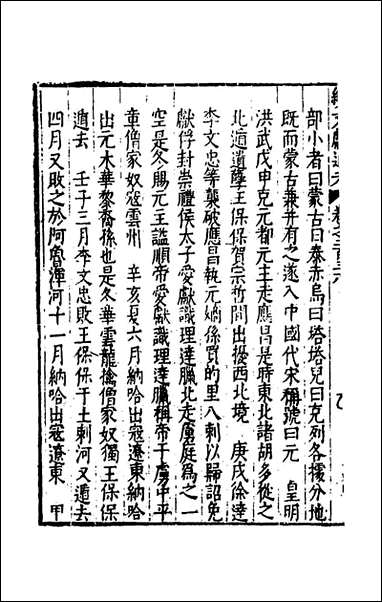 部小者曰蒙古曰泰赤烏曰塔塔兒曰克列各據分地
既而蒙古兼并有之遂入中國代宋稱號曰元　皇明
洪武戊申克元都元主走應昌是時東北諸胡多從之
北遁遺孽王保保賀宗哲間出擾西北境　庚戌徐達
李文忠等襲破應昌執元嫡孫買的里八剌以歸詔免
獻俘封崇禮侯太子愛獻識理達臘北走虜庭為之一
空是冬賜元主謚順帝愛獻識理達臘稱帝于虜中平
章僧家奴寇雲州　辛亥夏六月納哈出寇遼東納哈
出元木華黎裔孫也是冬華雲龍擒僧家奴獨王保保
遁去　壬子三月李文忠敗王保保于土剌河又遁去
四月又敗之於阿魯渾河十一月納哈出寇遼東　甲